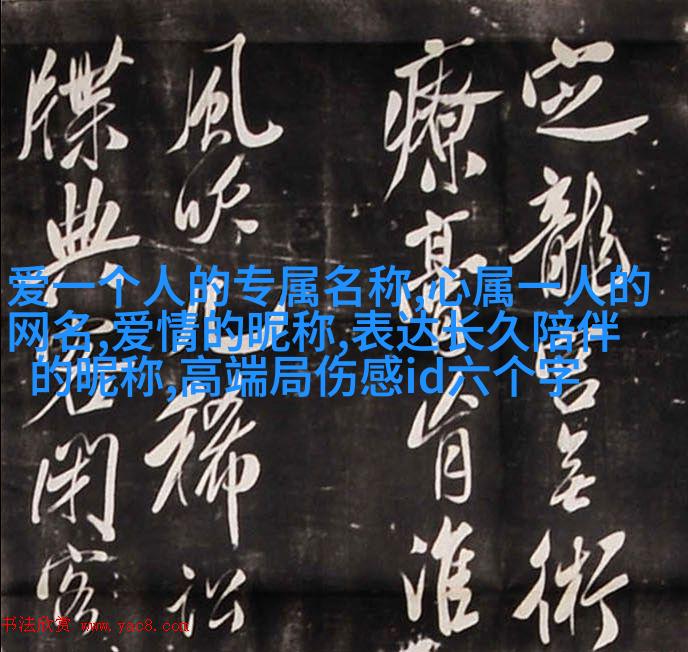 爱一个人的专属名称,心属一人的
网名,爱情的昵称,表达长久陪伴
的昵称,高端局伤感id六个字
龍無術
療淮
風吹稀訟
牒典閑客
书法欣赏 www.yac8.com